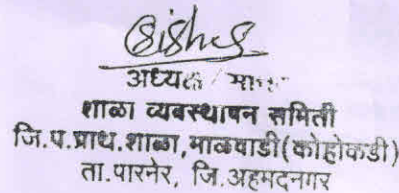 अध्यक्ष
शाळा व्यवस्थापन समिती
जि.प.प्राथ.शाळा,माळवाडी(कोहोकडी)
ता.पारनेर, जि.अहमदनगर